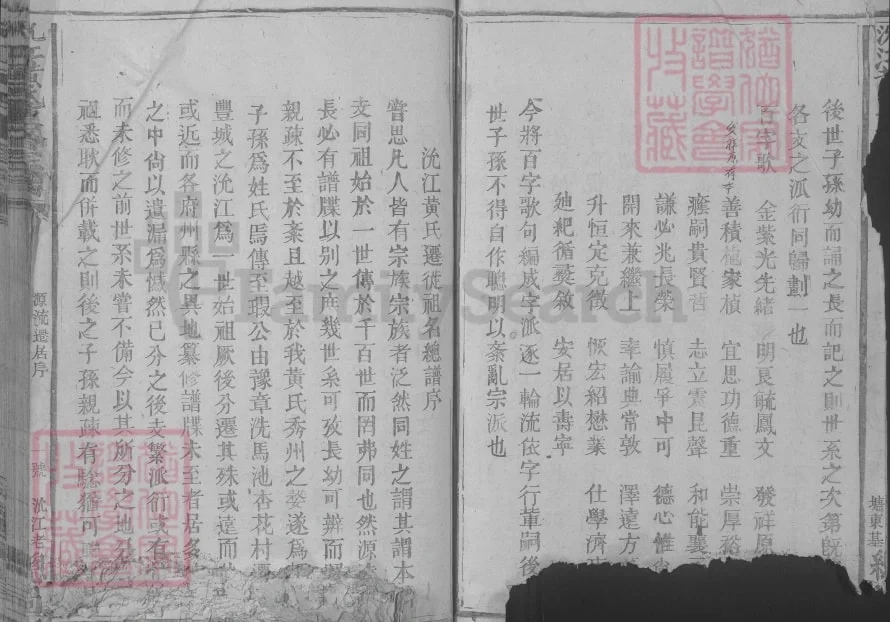 後世子孫幼而誦之長而記之則世系之次第既
各支之派衍同歸劃一也
百字歌 金紫光先緒 明良毓鳳文 發祥原
善積槐家楨 宜思功德重 崇厚裕
嗣貴賢哲 志立震昆聲 和能襄
謙必兆長榮 慎履孚中可 德心惟
開來兼繼上 率諭典常敦 澤遠方
升恒定克徵 恢宏紹懋業 仕學濟
廸紀循彝敘 安居以壽寧
今將百字歌句編成字派逐一輪流依字行輩嗣後
世子孫不得自作聰明以紊亂宗派也
沇江黃氏遷徙祖名總譜序
嘗思凡人皆有宗族宗族者泛然同姓之謂其謂本
支同祖始於一世傳於千百世而罔弗同也然源
長必有譜牒以別之庶幾世系可攷長幼可辨而
親疎不至於紊且越至於我黃氏秀州之婺遂爲
子孫爲姓氏焉傳至瑕公由豫章洗馬池杏花村
豐城之沇江爲一世始祖厥後分遷其殊或遠而
或近而各府州縣之異地纂修譜牒未至者居多
之中尙以遺漏爲憾然已分之後支繁派衍或有
而未修之前世系未嘗不備今以其所分之地
祖悉耿而併載之則後之子孫親疎有騐猶可
源流遷居序
一號
沇江老
塘東基
FamilySearch
譜學會
收藏